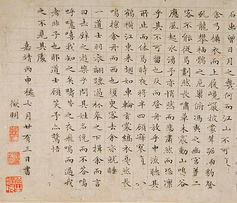 石出曾日月之幾何而江山不可復識
矣予乃攝衣而上履巉巖披蒙茸踞虎豹登
虬龍攀栖鶻之危巢俯馮夷之幽宮蓋二
客不能從焉劃然長嘯草木震動山鳴谷
應風起水涌予亦悄然而悲肅然而恐凜
乎其不可留也反而登舟放乎中流聽其
所止而休焉時夜將半四顧寂寥適有孤
鶴橫江東來翅如車輪玄裳縞衣戛然長
鳴掠予舟而西也須臾客去予亦就睡夢
一道士羽衣翩躚過臨皋之下揖予而言
曰赤壁之遊樂乎問其姓名俛而不答
嗚呼噫嘻我知之矣疇昔之夜飛鳴而過我
者非子也耶道士顧笑予亦驚悟
之不見其處
嘉靖丙申七月廿有三日書
徵明